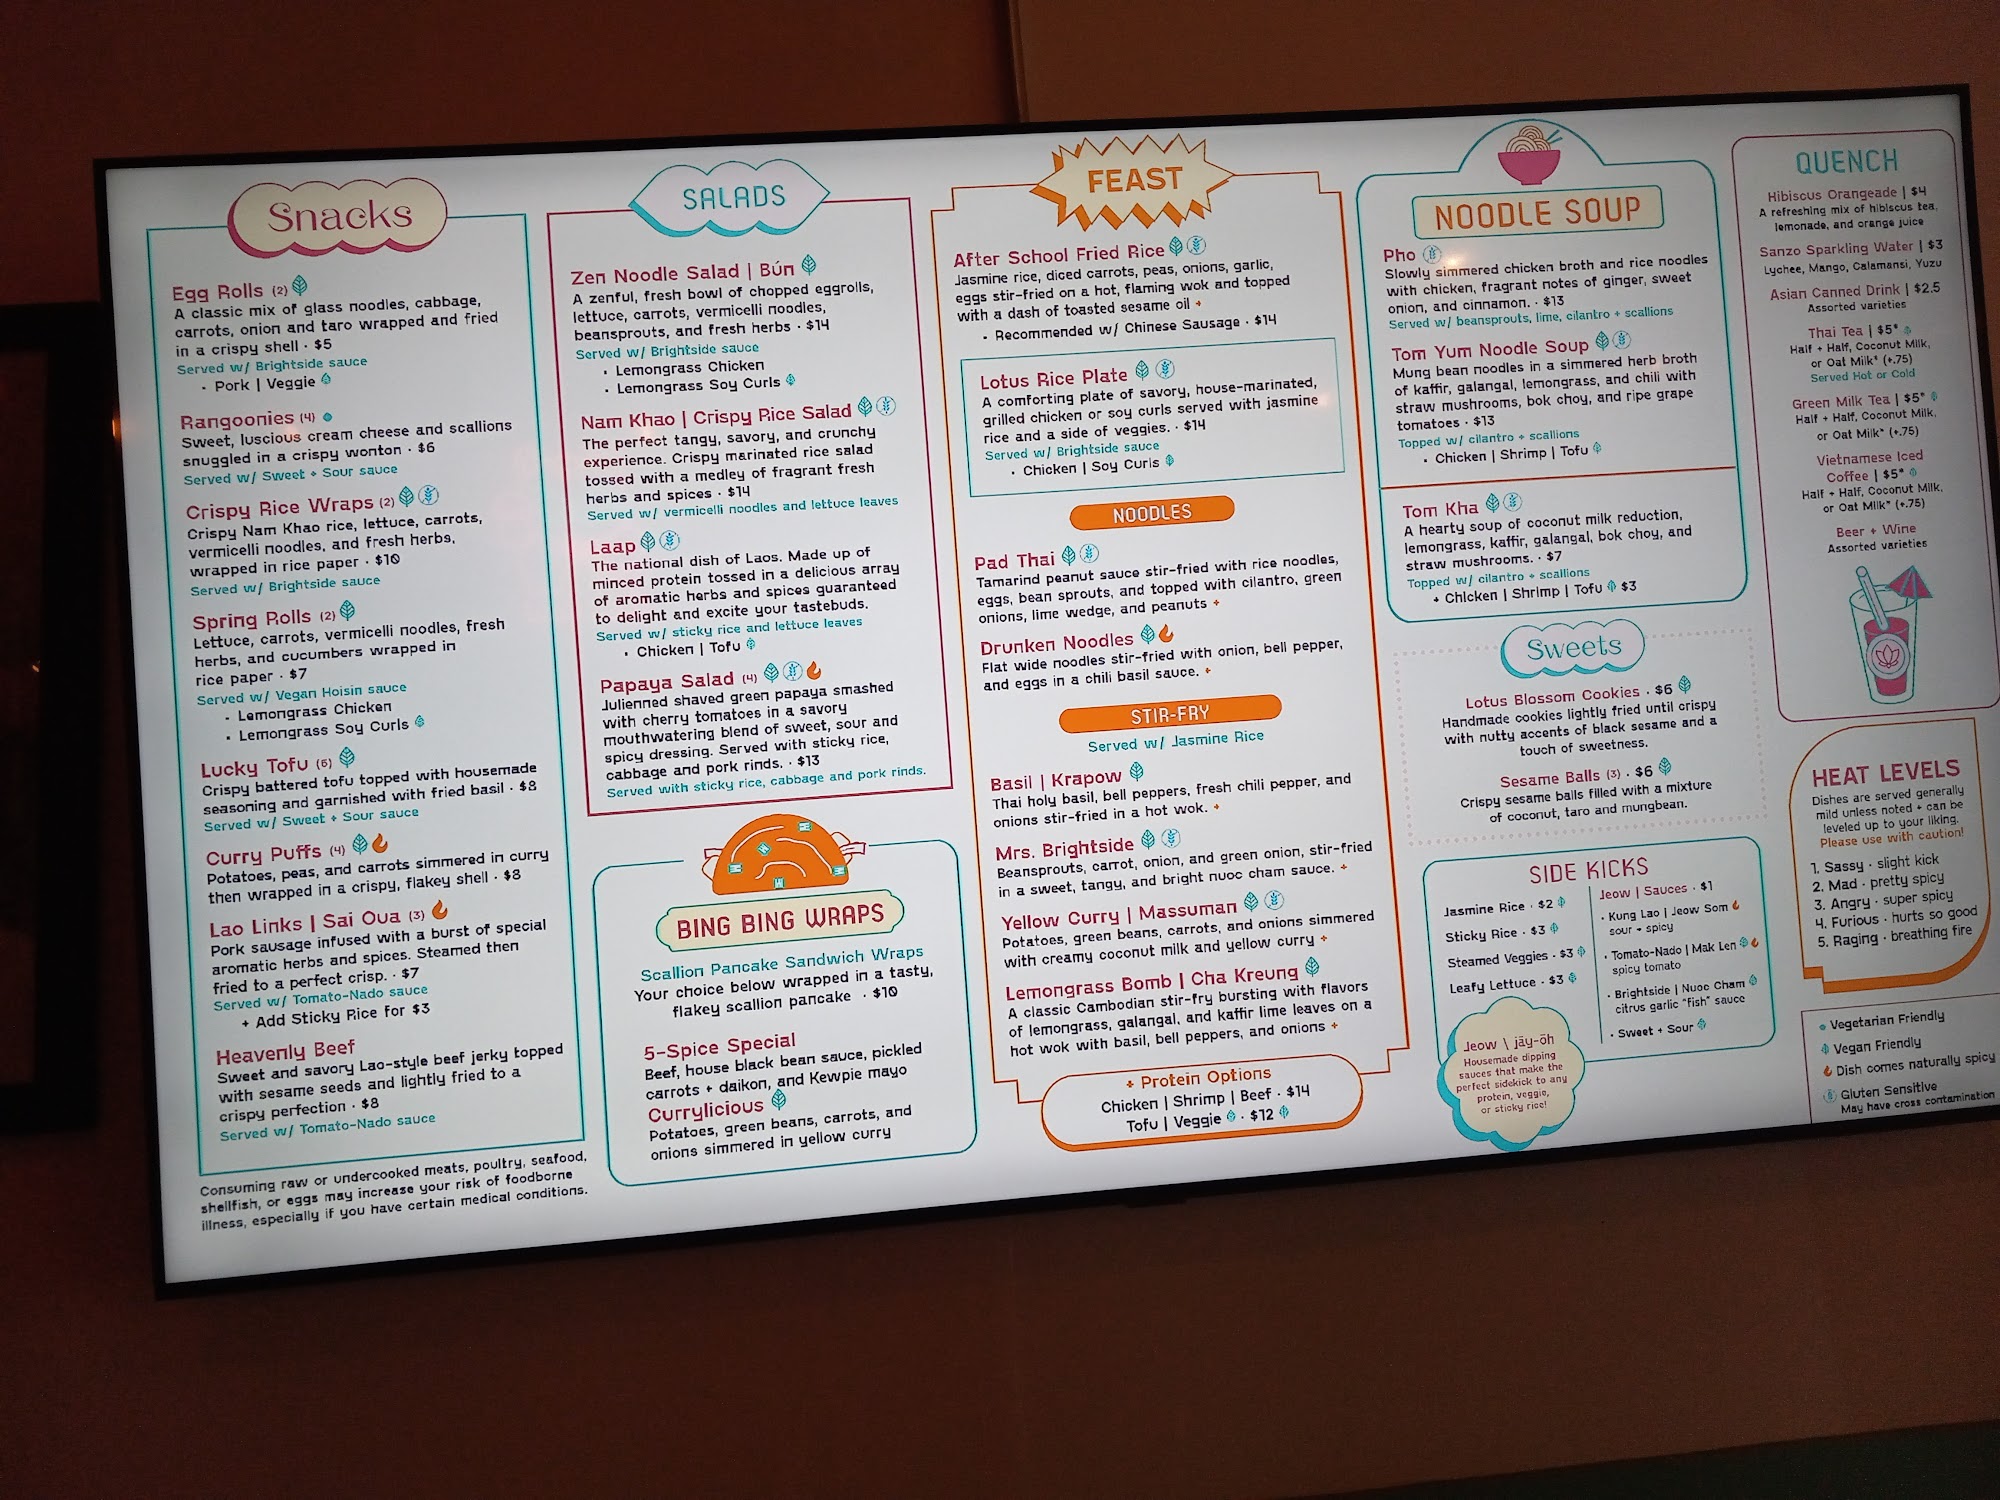 Snacks
Egg Rolls (2)
A classic mix of glass noodles, cabbage,
carrots, onion and taro wrapped and fried
in a crispy shell · $5
Served w/ Brightside sauce
· Pork | Veggie
Rangoonies (4)
Sweet, luscious cream cheese and scallions
snuggled in a crispy wonton · $6
Served w/ Sweet + Sour sauce
Crispy Rice Wraps (2)
Crispy Nam Khao rice, lettuce, carrots,
vermicelli noodles, and fresh herbs,
wrapped in rice paper · $10
Served w/ Brightside sauce
Spring Rolls (2)
Lettuce, carrots, vermicelli noodles, fresh
herbs, and cucumbers wrapped in
rice paper · $7
Served w/ Vegan Hoisin sauce
· Lemongrass Chicken
· Lemongrass Soy Curls
Lucky Tofu (6)
Crispy battered tofu topped with housemade
seasoning and garnished with fried basil · $8
Served w/ Sweet + Sour sauce
Curry Puffs (4)
Potatoes, peas, and carrots simmered in curry
then wrapped in a crispy, flakey shell · $8
Lao Links | Sai Oua (3)
Pork sausage infused with a burst of special
aromatic herbs and spices. Steamed then
fried to a perfect crisp. · $7
Served w/ Tomato-Nado sauce
+ Add Sticky Rice for $3
Heavenly Beef
Sweet and savory Lao-style beef jerky topped
with sesame seeds and lightly fried to a
crispy perfection · $8
Served w/ Tomato-Nado sauce
Consuming raw or undercooked meats, poultry, seafood,
shellfish, or eggs may increase your risk of foodborne
illness, especially if you have certain medical conditions.
SALADS
Zen Noodle Salad | Bún
A zenful, fresh bowl of chopped eggrolls,
lettuce, carrots, vermicelli noodles,
beansprouts, and fresh herbs · $14
Served w/ Brightside sauce
· Lemongrass Chicken
· Lemongrass Soy Curls
Nam Khao | Crispy Rice Salad
The perfect tangy, savory, and crunchy
experience. Crispy marinated rice salad
tossed with a medley of fragrant fresh
herbs and spices · $14
Served w/ vermicelli noodles and lettuce leaves
Laap
The national dish of Laos. Made up of
minced protein tossed in a delicious array
of aromatic herbs and spices guaranteed
to delight and excite your tastebuds.
Served w/ sticky rice and lettuce leaves
· Chicken | Tofu
Papaya Salad (4)
Julienned shaved green papaya smashed
with cherry tomatoes in a savory
mouthwatering blend of sweet, sour and
spicy dressing. Served with sticky rice,
cabbage and pork rinds. · $13
Served with sticky rice, cabbage and pork rinds.
BING BING WRAPS
Scallion Pancake Sandwich Wraps
Your choice below wrapped in a tasty,
flakey scallion pancake · $10
5-Spice Special
Beef, house black bean sauce, pickled
carrots + daikon, and Kewpie mayo
Currylicious
Potatoes, green beans, carrots, and
onions simmered in yellow curry
FEAST
After School Fried Rice
Jasmine rice, diced carrots, peas, onions, garlic,
eggs stir-fried on a hot, flaming wok and topped
with a dash of toasted sesame oil +
· Recommended w/ Chinese Sausage · $14
Lotus Rice Plate
A comforting plate of savory, house-marinated,
grilled chicken or soy curls served with jasmine
rice and a side of veggies. · $14
Served w/ Brightside sauce
· Chicken | Soy Curls
NOODLES
Pad Thai
Tamarind peanut sauce stir-fried with rice noodles,
eggs, bean sprouts, and topped with cilantro, green
onions, lime wedge, and peanuts +
Drunken Noodles
Flat wide noodles stir-fried with onion, bell pepper,
and eggs in a chili basil sauce. +
STIR-FRY
Served w/ Jasmine Rice
Basil | Krapow
Thai holy basil, bell peppers, fresh chili pepper, and
onions stir-fried in a hot wok. +
Mrs. Brightside
Beansprouts, carrot, onion, and green onion, stir-fried
in a sweet, tangy, and bright nuoc cham sauce. +
Yellow Curry | Massuman
Potatoes, green beans, carrots, and onions simmered
with creamy coconut milk and yellow curry +
Lemongrass Bomb | Cha Kreung
A classic Cambodian stir-fry bursting with flavors
of lemongrass, galangal, and kaffir lime leaves on a
hot wok with basil, bell peppers, and onions +
+ Protein Options
Chicken | Shrimp | Beef · $14
Tofu | Veggie · $12
NOODLE SOUP
Pho
Slowly simmered chicken broth and rice noodles
with chicken, fragrant notes of ginger, sweet
onion, and cinnamon. · $13
Served w/ beansprouts, lime, cilantro + scallions
Tom Yum Noodle Soup
Mung bean noodles in a simmered herb broth
of kaffir, galangal, lemongrass, and chili with
straw mushrooms, bok choy, and ripe grape
tomatoes · $13
Topped w/ cilantro + scallions
· Chicken | Shrimp | Tofu
Tom Kha
A hearty soup of coconut milk reduction,
lemongrass, kaffir, galangal, bok choy, and
straw mushrooms. · $7
Topped w/ cilantro + scallions
+ Chicken | Shrimp | Tofu $3
Sweets
Lotus Blossom Cookies · $6
Handmade cookies lightly fried until crispy
with nutty accents of black sesame and a
touch of sweetness.
Sesame Balls (3) · $6
Crispy sesame balls filled with a mixture
of coconut, taro and mungbean.
SIDE KICKS
Jasmine Rice · $2
Sticky Rice · $3
Steamed Veggies · $3
Leafy Lettuce · $3
Jeow | Sauces · $1
· Kung Lao | Jeow Som
sour + spicy
· Tomato-Nado | Mak Len
spicy tomato
· Brightside | Nuoc Cham
citrus garlic "fish" sauce
· Sweet + Sour
Jeow \ jāy-ōh
Housemade dipping
sauces that make the
perfect sidekick to any
protein, veggie,
or sticky rice!
QUENCH
Hibiscus Orangeade | $4
A refreshing mix of hibiscus tea,
lemonade, and orange juice
Sanzo Sparkling Water | $3
Lychee, Mango, Calamansi, Yuzu
Asian Canned Drink | $2.5
Assorted varieties
Thai Tea | $5*
Half + Half, Coconut Milk,
or Oat Milk* (+.75)
Served Hot or Cold
Green Milk Tea | $5*
Half + Half, Coconut Milk,
or Oat Milk* (+.75)
Vietnamese Iced
Coffee | $5*
Half + Half, Coconut Milk,
or Oat Milk* (+.75)
Beer + Wine
Assorted varieties
HEAT LEVELS
Dishes are served generally
mild unless noted + can be
leveled up to your liking.
Please use with caution!
1. Sassy · slight kick
2. Mad · pretty spicy
3. Angry · super spicy
4. Furious · hurts so good
5. Raging · breathing fire
Vegetarian Friendly
Vegan Friendly
Dish comes naturally spicy
Gluten Sensitive
May have cross contamination